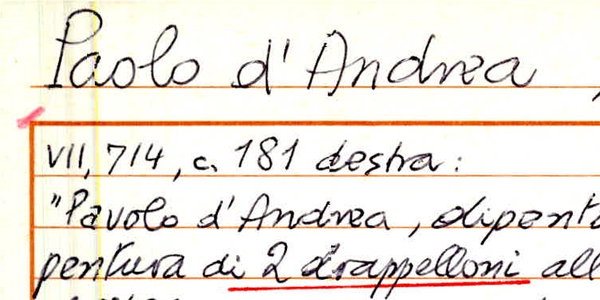 Paolo d'Andrea,
VII, 714, c. 181 destra:
"Pavolo d'Andrea, dipento
pentura di 2 drappelloni all